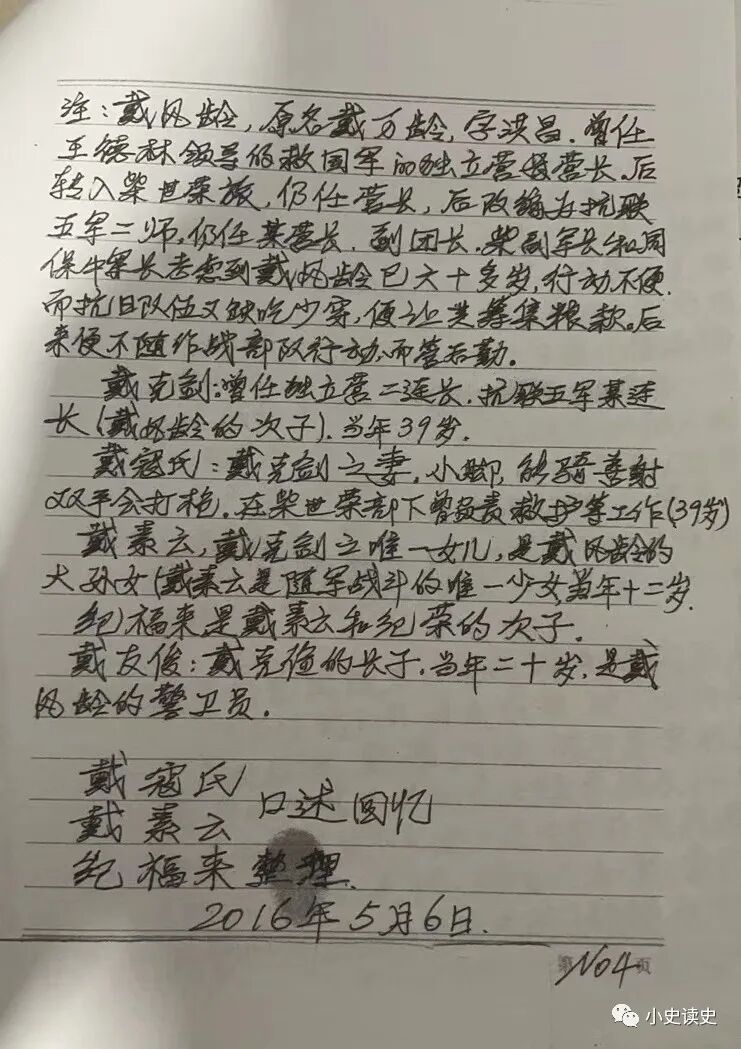 注：戴风龄，原名戴万龄，字洪昌．曾任
王德林领导的救国军的独立营母营长．后
转入柴世荣旅，仍任营长，后改编为抗联
五军二师，仍任某营长．副团长．柴副军长和周
保中军长考虑到戴风龄已六十多岁，行动不便．
而抗日队伍又缺吃少穿，便让其筹集粮款。后
来便不随作战部队行动，而管后勤。
戴克剑：曾任独立营二连长．抗联五军某连
长（戴风龄的次子）．当年39岁．
戴寇氏：戴克剑之妻．小脚，能骑善射
双手会打枪．在柴世荣部下曾负责救护等工作（39岁）
戴素云，戴克剑之唯一女儿，是戴风龄的
大孙女（戴素云是随军战斗的唯一少女，当年十二岁．
纪福来是戴素云和纪荣的次子．
戴友俊：戴克俭的长子．当年二十岁．是戴
风龄的警卫员．
戴寇氏
口述回忆
戴素云
纪福来整理．
2016年5月6日．
第No4页
小史读史